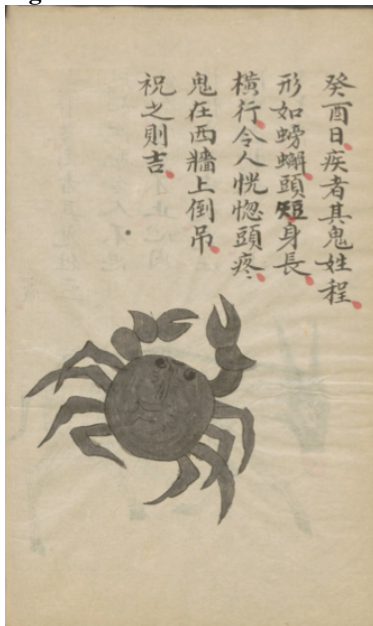 癸酉日疾者其鬼姓程
形如螃蠏頭短身長
橫行令人恍惚頭疼
鬼在西牆上倒吊
祝之則吉